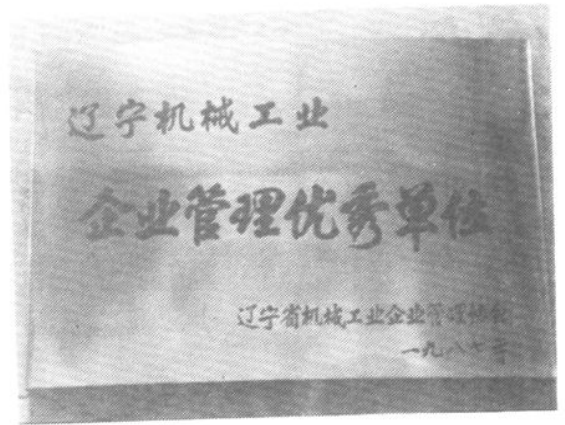 辽宁机械工业
企业管理优秀单位
辽宁省机械工业企业管理协会
一九八七年